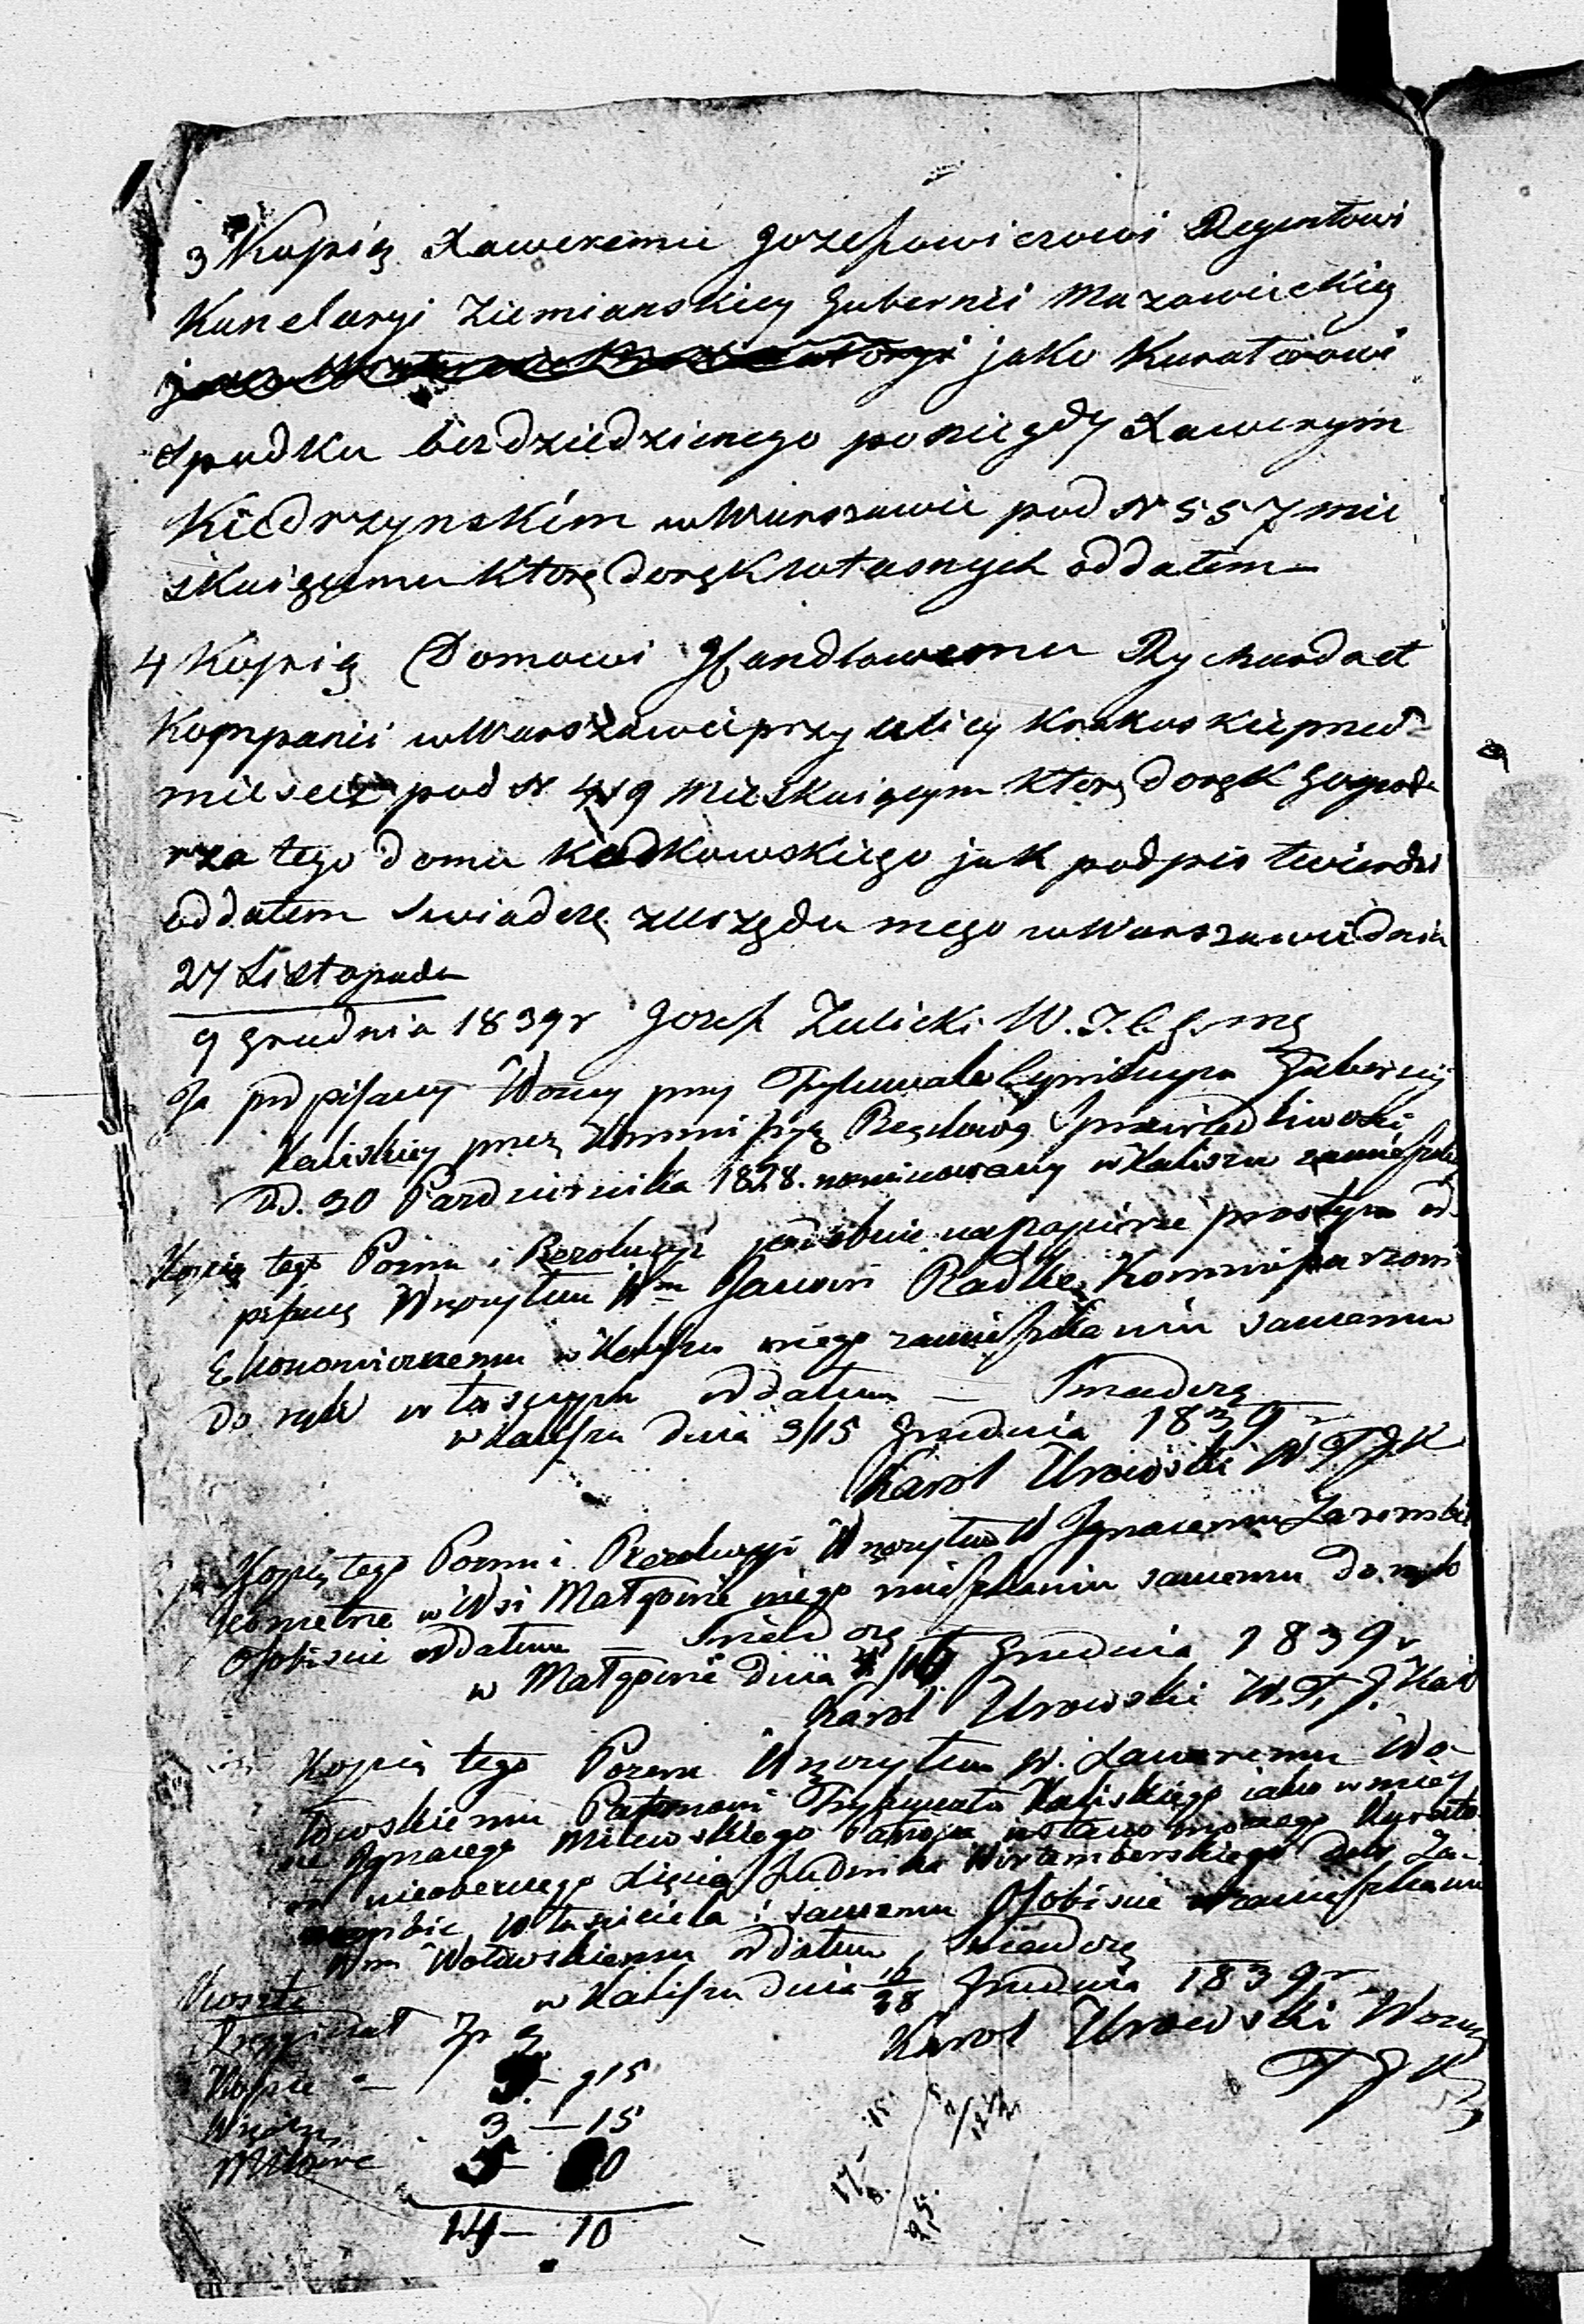 3 Kopią Xaweremu Jozefowiczowi Regentowi
Kancelaryi Ziemianskiey Gubernii Mazowieckiey
jako Kuratorowi
Spadku bezdziedzicznego po niegdy Xawerym
Kiedrzynskim w Warszawie pod N 557 mie
szkaiącemu którę do rąk własnych oddałem —
4 Kopią Domowi Handlowemu Rychard et
Kompanii w Warszawie przy ulicy Krakoskie przed=
mieście pod N 419 Mieszkaiącym którę do rąk Gospoda
rza tego domu Kedkowskiego jak podpis twierdzi
oddałem Swiadczę z Urzędu mego w Warszawie dnia
27 Listopada
9 Grudnia 1839 r Jozef Zulicki W. T. C. G. mg
Ja podpisany Wozny przy Trybunale Cywilnym Gubernij
Kaliskiey przez Kommissyę Rządową Sprawiedliwości
D.d. 30 Pazdziernika 1828. nominowany w Kaliszu zamieszkały
Kopią tego Pozwu i Rezolucyi podobnie na papierze prostym od
pisaną Wręczyłem Wmu Janowi Radke Kommissarzowi
Ekonomicznemu w Kaliszu w iego zamieszkaniu samemu
do rąk własnych oddałem — Swiadczę
w Kaliszu dnia 3/15 Grudnia 1839 r
Karol Urowski W. T. G. K
Kopią tego Pozwu i Rezolucyi Wręczyłem W Ignacemu Zarembie
Jeometrze w Wsi Małgowie w iego mieszkaniu samemu do rąk
Osobiscie oddałem — Swiadczę
w Małgowie dnia 4/16 Grudnia 1839 r
Karol Urowski W. T. G. Kal
Kopią tego Pozwu Wręczyłem W. Xaweremu Wo-
łowskiemu Patronowi Trybunału Kaliskiego iako w miey
sce Ignacego Milewskiego Patrona ustanowionego Kurato
ra nieobecnego Xięcia Ludwika Wirtemberskiego Dóbr Za-
Właściciela i samemu Osobiscie w zamieszkaniu
Wm Wołowskiemu oddałem Swiadczę
w Kaliszu dnia 16/28 Grudnia 1839 r
Karol Urowski Wozny
T G K
Koszta
Oryginał Zp 2
Kopie — g 15
Wręcz. 3 — 15
Milowe 5 — 10
14 — 10